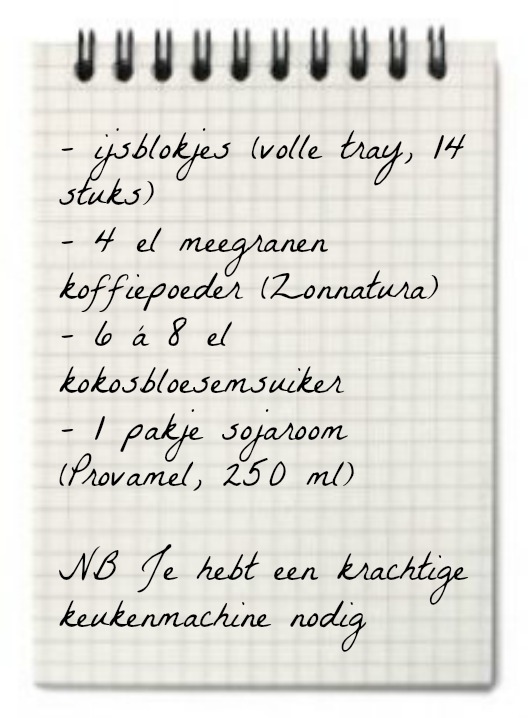 - ijsblokjes (volle tray, 14
stuks)
- 4 el meegranen
koffiepoeder (Zonnatura)
- 6 á 8 el
kokosbloesemsuiker
- 1 pakje sojaroom
(Provamel, 250 ml)
NB Je hebt een krachtige
keukenmachine nodig